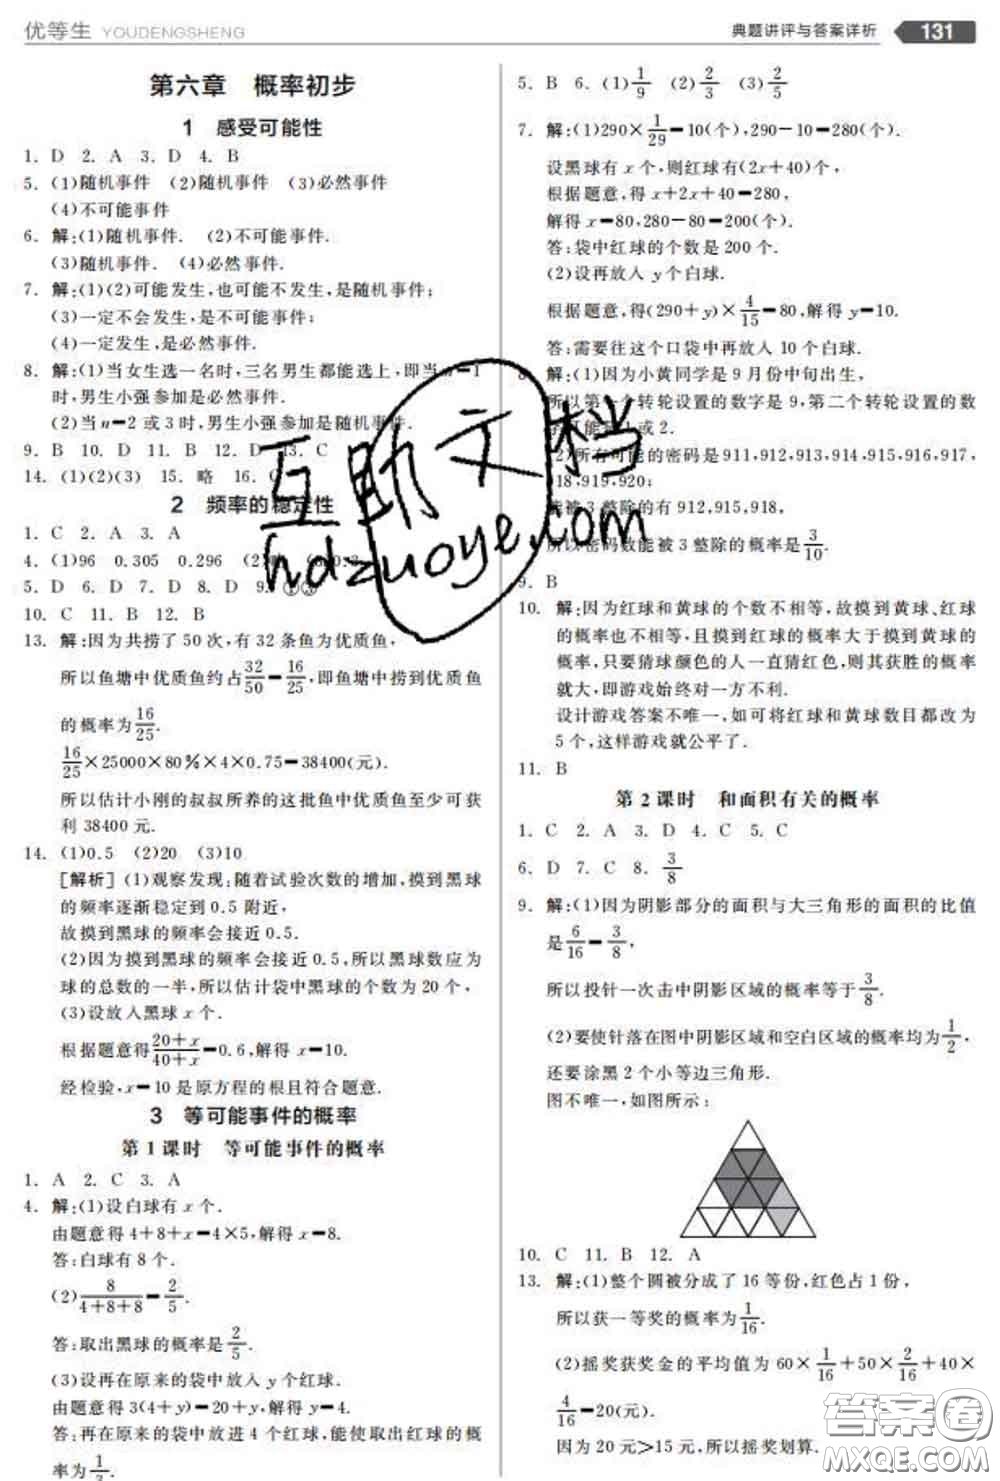 优等生 YOUDENGSHENG
典题讲评与答案详析 131
第六章 概率初步
1 感受可能性
1. D 2. A 3. D 4. B
5. (1)随机事件 (2)随机事件 (3)必然事件
(4)不可能事件
6. 解:(1)随机事件. (2)不可能事件.
(3)随机事件. (4)必然事件.
7. 解:(1)(2)可能发生,也可能不发生,是随机事件;
(3)一定不会发生,是不可能事件;
(4)一定发生,是必然事件.
8. 解:(1)当女生选一名时,三名男生都能选上,即当n=1
时,男生小强参加是必然事件.
(2)当n=2或3时,男生小强参加是随机事件.
9. B 10. D 11. B 12. D 13. C
14. (1)(2)(3) 15. 略 16. C
2 频率的稳定性
1. C 2. A 3. A
4. (1)96 0.305 0.296 (2)略
5. D 6. D 7. D 8. D 9. ①③
10. C 11. B 12. B
13. 解:因为共捞了50次,有32条鱼为优质鱼,
所以鱼塘中优质鱼约占32/50=16/25,即鱼塘中捞到优质鱼
的概率为16/25.
16/25×25000×80%×4×0.75=38400(元).
所以估计小刚的叔叔所养的这批鱼中优质鱼至少可获
利38400元.
14. (1)0.5 (2)20 (3)10
[解析] (1)观察发现:随着试验次数的增加,摸到黑球
的频率逐渐稳定到0.5附近,
故摸到黑球的频率会接近0.5.
(2)因为摸到黑球的频率会接近0.5,所以黑球数应为
球的总数的一半,所以估计袋中黑球的个数为20个,
(3)设放入黑球x个.
根据题意得(20+x)/(40+x)=0.6,解得x=10.
经检验,x=10是原方程的根且符合题意.
3 等可能事件的概率
第1课时 等可能事件的概率
1. A 2. C 3. A
4. 解:(1)设白球有x个.
由题意得4+8+x=4×5,解得x=8.
答:白球有8个.
(2)8/(4+8+8)=2/5.
答:取出黑球的概率为2/5.
(3)设再在原来的袋中放入y个红球.
由题意得3(4+y)=20+y,解得y=4.
答:再在原来的袋中放进4个红球,能使取出红球的概
率为1/3.
5. B 6. (1)1/9 (2)2/3 (3)2/5
7. 解:(1)290×1/29=10(个),290-10=280(个).
设黑球有x个,则红球有(2x+40)个.
根据题意,得x+2x+40=280,
解得x=80,280-80=200(个).
答:袋中红球的个数是200个.
(2)设再放入y个白球.
根据题意,得(290+y)×4/15=80,解得y=10.
答:需要往这个口袋中再放入10个白球.
8. 解:(1)因为小黄同学是9月份中旬出生,
所以第一个转轮设置的数字是9,第二个转轮设置的数
字可能是1或2.
(2)所有可能的密码是911,912,913,914,915,916,917,
918,919,920;
能被3整除的有912,915,918,
所以密码数能被3整除的概率是3/10.
9. B
10. 解:因为红球和黄球的个数不相等,故摸到黄球、红球
的概率也不相等,且摸到红球的概率大于摸到黄球的
概率,只要猜球颜色的人一直猜红色,则其获胜的概率
就大,即游戏始终对一方不利.
设计游戏答案不唯一,如可将红球和黄球数目都改为
5个,这样游戏就公平了.
11. B
第2课时 和面积有关的概率
1. C 2. A 3. D 4. C 5. C
6. D 7. C 8. 3/8
9. 解:(1)因为阴影部分的面积与大三角形的面积的比值
是6/16=3/8,
所以投针一次击中阴影区域的概率等于3/8.
(2)要使针落在图中阴影区域和空白区域的概率均为1/2,
还要涂黑2个小等边三角形.
图不唯一,如图所示:
10. C 11. B 12. A
13. 解:(1)整个圆被分成了16等份,红色占1份,
所以获一等奖的概率为1/16.
(2)摇奖获奖金的平均值为60×1/16+50×2/16+40×
4/16=20(元).
因为20元>15元,所以摇奖划算.
互助文档
hdzuoye.com
答案圈
MXQE.COM